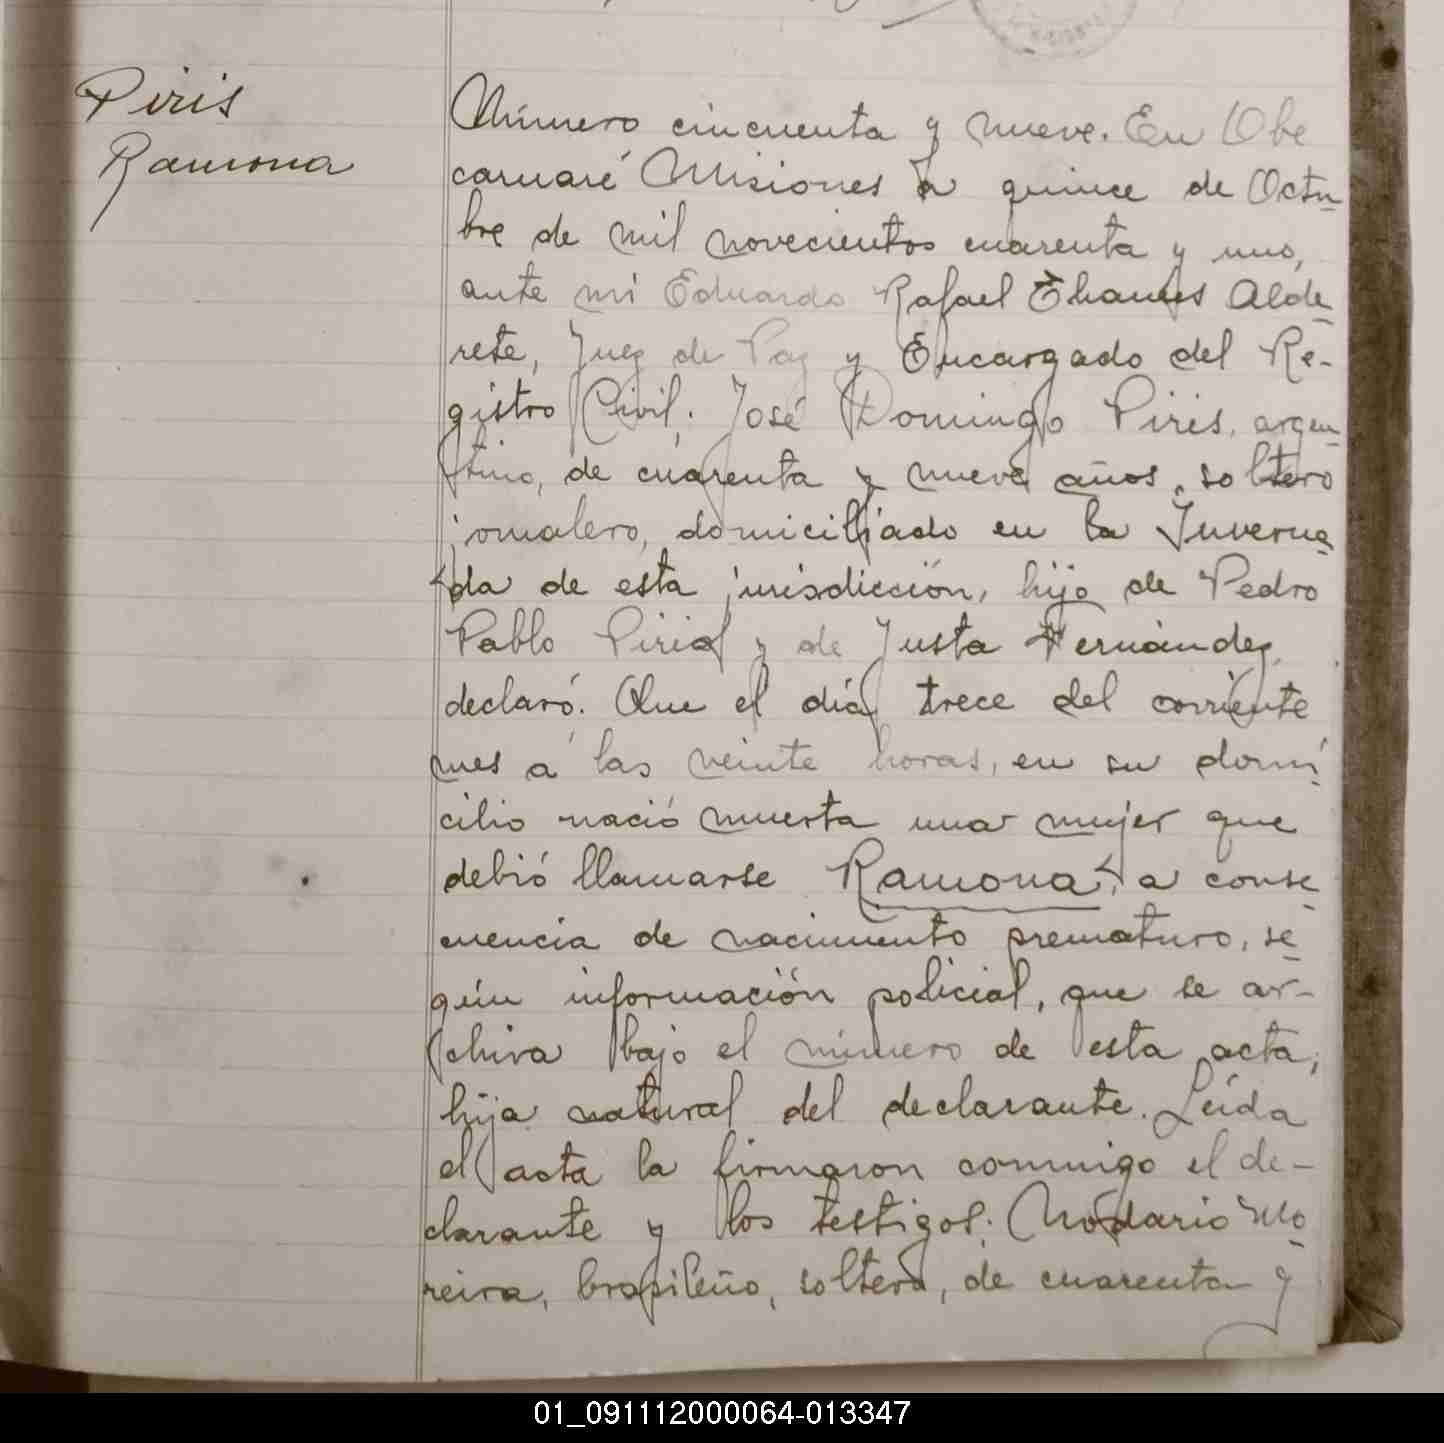 Piris
Ramona
Número cincuenta y nueve. En Obe
camaré Misiones a quince de Octu-
bre de mil novecientos cuarenta y uno,
ante mi Eduardo Rafael Alde-
rete, Juez de Paz y Encargado del Re-
gistro Civil; José Domingo Piris, argen-
tino, de cuarenta y nueve años, soltero
jornalero, domiciliado en la Inverna-
da de esta jurisdicción, hijo de Pedro
Pablo Piris y de Justa Fernández,
declaró: Que el día trece del corriente
mes á las veinte horas, en su domi-
cilio nació muerta una mujer que
debió llamarse Ramona, a conse-
cuencia de nacimiento prematuro, se-
gún información policial, que se ar-
chiva bajo el número de esta acta,
hija natural del declarante. Leída
el acta la firmaron conmigo el de-
clarante y los testigos: Mo-
reira, brasileño, soltero, de cuarenta y
01_091112000064-013347